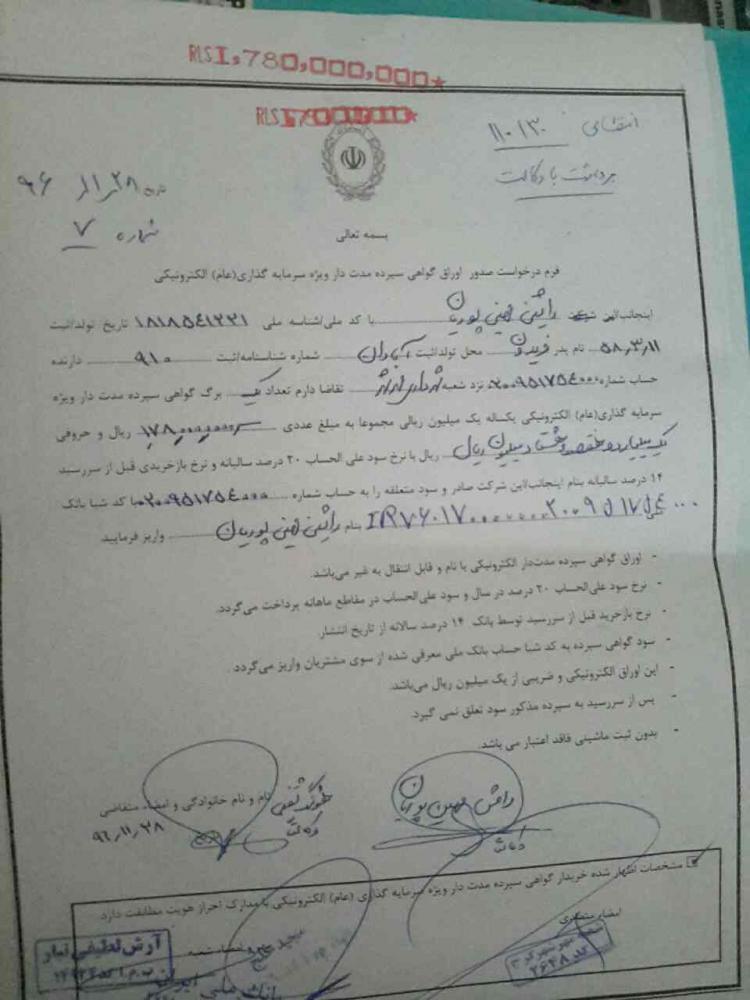 RLS1,780,000,000*
RLS1780000000*
انتشاری ۱۱۰۱۳۰
برداشت با وکالت
۹۶/۱۱/۲۸
شماره ۷
بسمه تعالی
فرم درخواست صدور اوراق گواهی سپرده مدت دار ویژه سرمایه گذاری(عام) الکترونیکی
اینجانب/این شرکت رامین مهین پوریان با کد ملی/شناسه ملی ۱۸۱۸۵۴۱۲۲۱ تاریخ تولد/ثبت
۵۸,۳,۱۱ نام پدر فریدون محل تولد/ثبت آبادان شماره شناسنامه/ثبت ۹۱۰ دارنده
حساب شماره ۰۲۰۰۹۵۱۷۵۴۰۰۰ نزد شعبه تقاضا دارم تعداد یک برگ گواهی سپرده مدت دار ویژه
سرمایه گذاری(عام) الکترونیکی یکساله یک میلیون ریالی مجموعا به مبلغ عددی ۱,۷۸۰,۰۰۰,۰۰۰ ریال و حروفی
یک میلیارد و هفتصد و هشتاد میلیون ریال ریال با نرخ سود علی الحساب ۲۰ درصد سالیانه و نرخ بازخریدی قبل از سررسید
۱۴ درصد سالیانه بنام اینجانب/این شرکت صادر و سود متعلقه را به حساب شماره ۰۲۰۰۹۵۱۷۵۴۰۰۰ با کد شبا بانک
ملی IR۷۶۰۱۷ بنام رامین مهین پوریان واریز فرمایید.
- اوراق گواهی سپرده مدت‌دار الکترونیکی با نام و قابل انتقال به غیر می‌باشد.
- نرخ سود علی‌الحساب ۲۰ درصد در سال و سود علی‌الحساب در مقاطع ماهانه پرداخت می‌گردد.
- نرخ بازخرید قبل از سررسید توسط بانک ۱۴ درصد سالانه از تاریخ انتشار
- سود گواهی سپرده به کد شبا حساب بانک ملی معرفی شده از سوی مشتریان واریز می‌گردد.
- این اوراق الکترونیکی و ضریبی از یک میلیون ریال می‌باشد.
- پس از سررسید به سپرده مذکور سود تعلق نمی گیرد.
- بدون ثبت ماشینی فاقد اعتبار می باشد.
نام و نام خانوادگی و امضاء متقاضی
رامین مهین پوریان
وکالت
۹۶,۱۱,۲۸
مشخصات اظهار شده خریدار گواهی سپرده مدت دار ویژه سرمایه گذاری (عام) الکترونیکی با مدارک احراز هویت مطابقت دارد.
امضاء متصدی
آرش لطیفی تبار
کد ۲۶۴۸
بانک ملی ایران